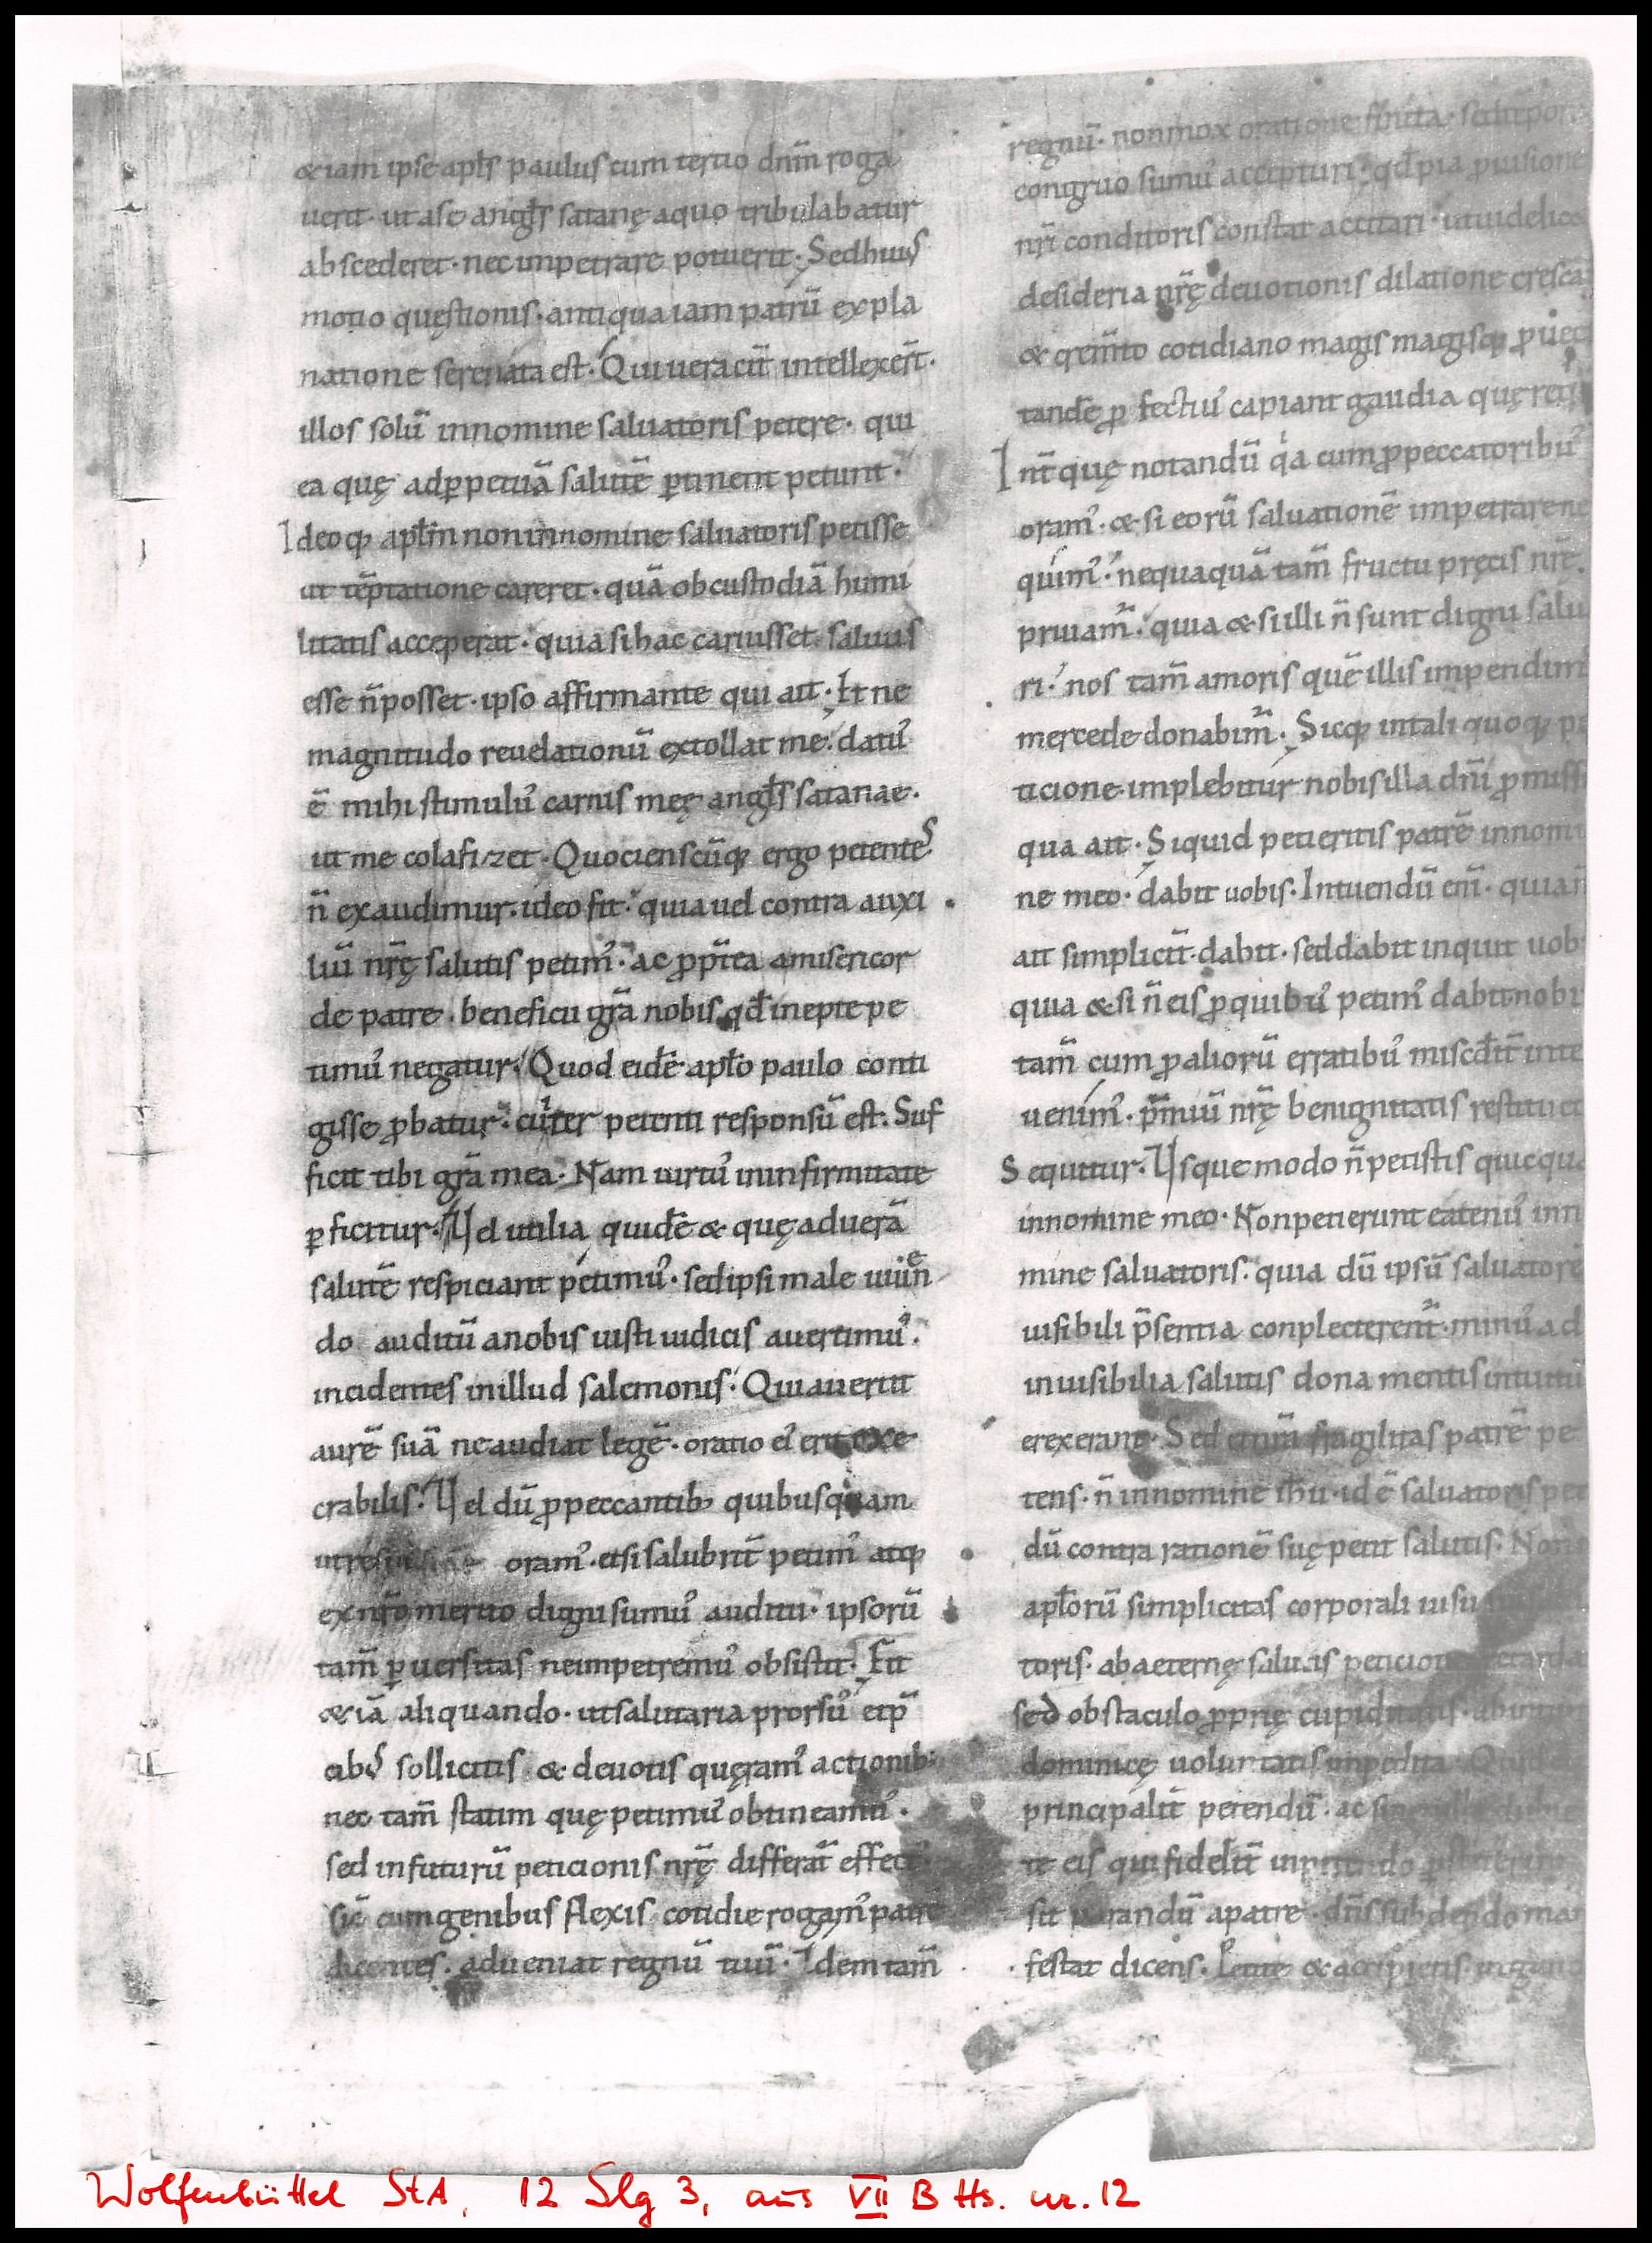 &iam ipse apl̄s paulus cum tertio dnm̄ roga
uerit· ut a se angl̄s satanę a quo tribulabatur
abscederet· nec impetrare potuerit· Sed huiuſ
motio quęstionis· antiqua iam patrū expla
natione serenata est· Qui ueracit̄ intellexer̄t·
illos solū in nomine saluatoris petere· qui
ea quę ad ꝑpetuā salutē ꝑtinent petunt·
Ideoq; apl̄m non in nomine saluatoris petisse
ut tēptatione careret· quā ob custodiā humi
litatis acceperat· quia si hac caruisset saluus
esse n̄ posset· ipso affirmante qui ait· Et ne
magnitudo reuelationū extollat me· datuꝰ
ē mihi stimuluꝰ carnis meę angl̄s satanae·
ut me colafizet· Quociensciūq; ergo petenteſ
n̄ exaudimur· ideo fit· quia uel contra auxi
liū nr̄ę salutis petimꝰ· ac ꝓpt̄ea a misericor
de patre· beneficii gr̄a nobis qd̄ inepte pe
timuꝰ negatur· Quod eidē apl̄o paulo conti
gisse ꝓbatur· cui ter petenti responsū est· Suf
ficit tibi gr̄a mea· Nam uirtuꝰ in infirmitate
ꝑficitur· Vel utilia quidē & quę ad uerā
salutē respiciant petimuꝰ· sed ipsi male uiuen
do auditū a nobis iusti iudicis auertimuꝰ·
incidentes in illud salemonis· Qui auertit
aurē suā ne audiat legē· oratio eiꝰ erit exe
crabilis· Vel dū ꝓ peccantib; quibusquam
ut oramꝰ· etsi salubrit̄ petimꝰ atq;
ex nr̄o merito digni sumuꝰ auditu· ipsorū
tam̄ ꝑuersitas ne impetremuꝰ obsistit· Fit
&iā aliquando· ut salutaria prorsuꝰ etp̄
cibꝰ sollicitis & deuotis quęramꝰ actionib;
nec tam̄ statim quę petimuꝰ obtineamuꝰ·
sed in futurū peticionis nr̄ę differat̄ effect
sic̄ cum genibus flexis cotidie rogamꝰ patrē
dicentes· adueniat regnū tuū· Idem tam̄
regnū· non mox oratione finita· sed tēpor
congruo sumuꝰ accepturi· qd̄ pia ꝓuisione
nr̄i conditoris constat actitari· ut uidelic&
desideria nr̄ę deuotionis dilatione crescā
& crem̄to cotidiano magis magisq; ꝓuec
tandē ꝑfectiuꝰ capiant gaudia quę req
Int̄ quę notandū qa cum ꝓ peccatoribuꝰ
oramꝰ· & si eorū saluationē impetrare ne
quimꝰ· nequaquā tam̄ fructu pręcis nr̄ę
priuam̄· quia & si illi n̄ sunt digni salu
ri· nos tam̄ amoris quē illis impendimꝰ
mercede donabim̄· Sicq; in tali quoq; pe
ticione implebitur nobis illa dn̄i ꝓmiss
qua ait· Siquid petieritis patrē in nomi
ne meo· dabit uobis· Intuendū eni̅· quia n̄
ait simplicit̄· dabit· sed dabit inquit uob
quia & si n̄ eis ꝓ quibuꝰ petimꝰ dabit· nobi
tam̄ cum ꝓ aliorū erratibuꝰ miscdit̄ inte
uenimꝰ· p̄miū nr̄ę benignitatis restituet
Sequitur· Vsque modo n̄ petistis quicqua
in nomine meo· Non petierunt eatenuꝰ in n
mine saluatoris· quia dū ipsū saluatorē
uisibili p̄sentia conplecterent̄· minuꝰ ad
inuisibilia salutis dona mentis intuitū
erexerant· Sed etiā fragilitas patrē pe
tens· n̄ in nomine ih̄u· id ē saluatoris pet
dū contra rationē suę petit salutis· Non
apl̄orū simplicitas corporali uisu
toris· ab aeternę salutis peticione
sed obstaculo ꝓprię cupiditatis·
dominicę uoluntatis impedita·
principalit̄ petendū· ac
te eis qui fidelit̄
sit sperandū a patre· dn̄s subdendo man
festat dicens· Petite & accipietis
Wolfenbüttel StA, 12 Slg 3, aus VII B Hs. nr. 12